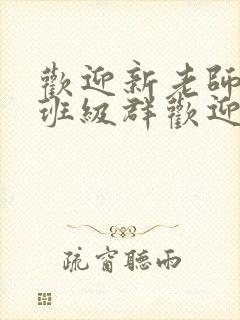 歡迎新老師
班級群歡迎
疏窗聽雨